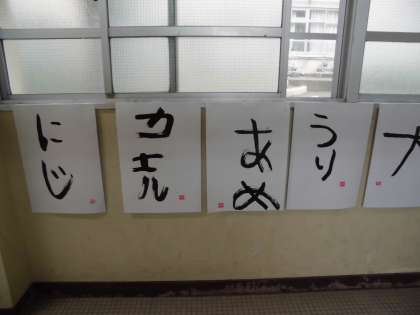 にじ
カエル
あめ
うり